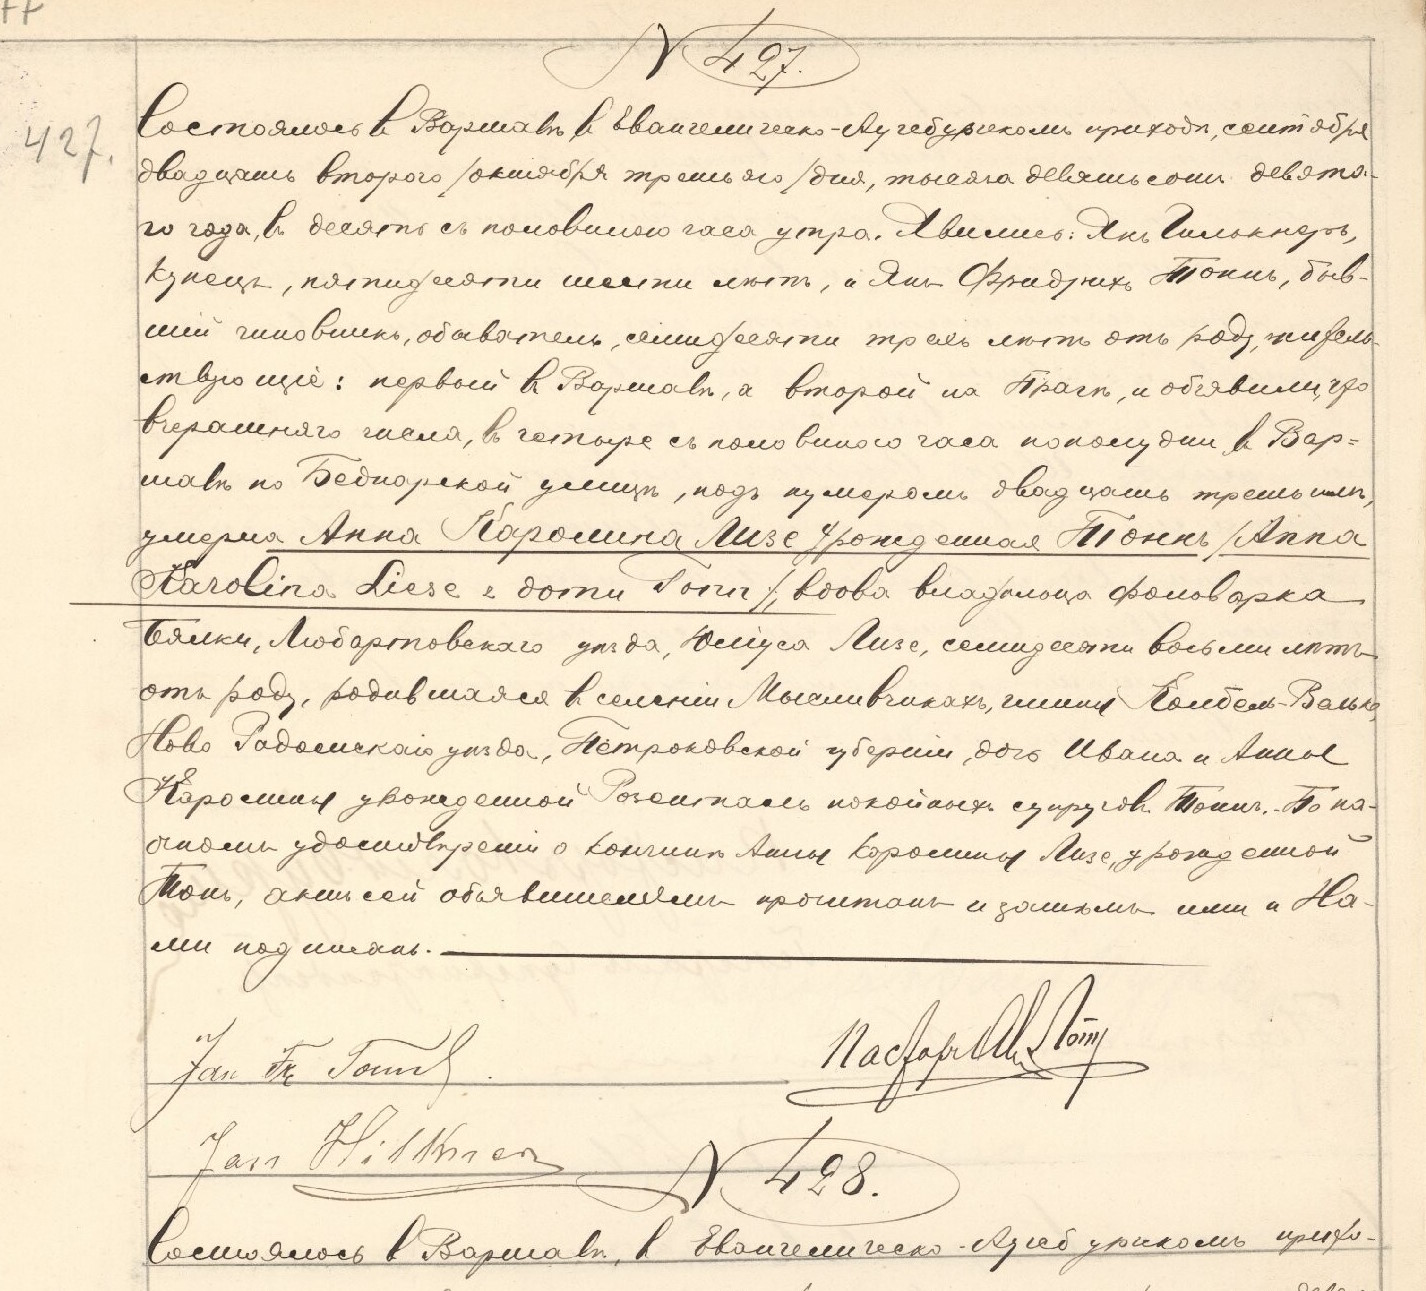 № 427.
427.
Состоялось в Варшаве в Евангелическо-Аугсбургском приходе, сентября
двадцать второго /октября третьяго/ дня, тысяча девятьсот девято-
го года, в десять съ половиною часа утра. Явились: Янъ Гилькнеръ,
купецъ, пятидесяти шести летъ, и Янъ Фридрихъ Тоннъ, быв-
шій чиновникъ, обыватель, семидесяти трехъ летъ отъ роду, житель-
ствующіе: первый в Варшаве, а второй на Праге, и объявили, что
вчерашняго числа, въ четыре съ половиною часа пополудни в Вар-
шаве по Беднарской улице, подъ нумеромъ двадцать третьимъ,
умерла Анна Каролина Лизе урожденная Тоннъ /Anna
Karolina Liese z domu Tonn/, вдова владельца фольварка
Бялки, Любартовскаго уезда, Юліуса Лизе, семидесяти восьми летъ
отъ роду, родившаяся в селеніи Мысливчикахъ, гмины Конбель-Вельке,
Ново Радомскаго уезда, Петроковской губерніи, дочь Ивана и Анны
Каролины урожденной Розенталь покойныхъ супруговъ Тоннъ. - По на-
очномъ удостовереніи о кончине Анны Каролины Лизе, урожденной
Тонъ, актъ сей объявителямъ прочитанъ и затемъ ими и На-
ми подписанъ.
Jan Fr Tonn
Пасторъ
Jan Hilkner
№ 428.
Состоялось в Варшаве, в Евангелическо-Аугсбургскомъ прихо-